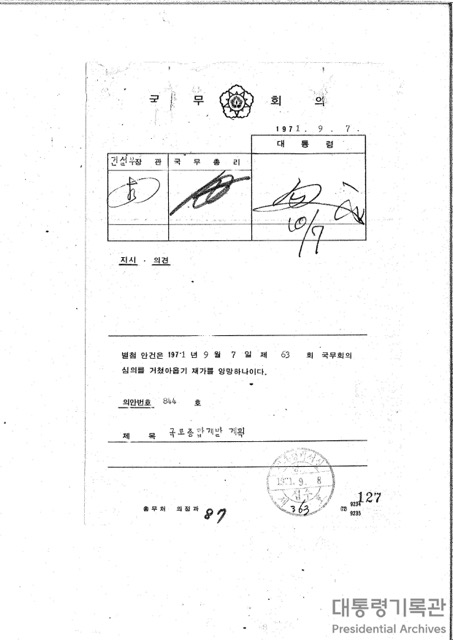 국 무 회 의
1971. 9. 7.
대 통 령
건설부장 관 국 무 총 리
10/7
지시 · 의견
별첨 안건은 1971 년 9 월 7 일 제 63 회 국무회의
심의를 거쳤아옵기 재가를 앙망하나이다.
의안번호 844 호
제 목 국토종합개발 계획
1971. 9. 8
접수
363
총무처 의정과
87
127
9234
9235
대통령기록관
Presidential Archives